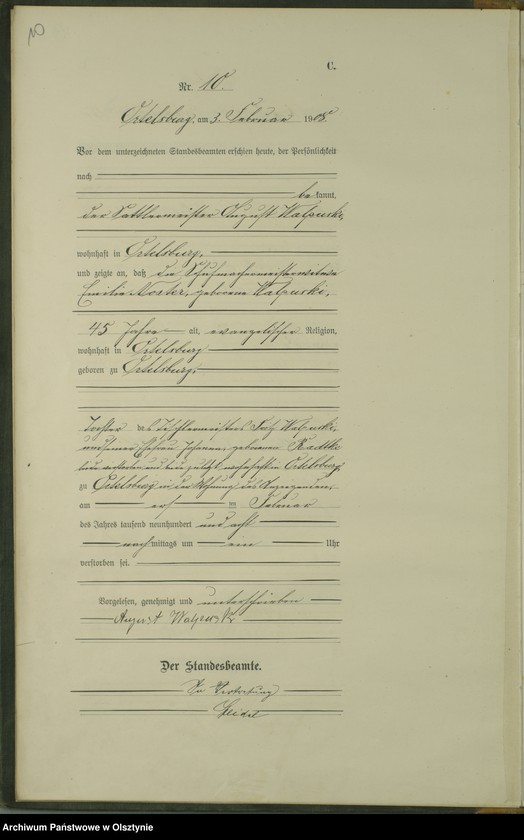 10
C.
Nr. 10.
Ortelsburg, am 3. Februar 1908
Vor dem unterzeichneten Standesbeamten erschien heute, der Persönlichkeit
nach
be kannt,
der Sattlermeister August Walpuski,
wohnhaft in Ortelsburg,
und zeigte an, daß die Schuhmachermeisterwitwe
Emilie Koster, geborene Walpuski,
45 Jahre alt, evangelischer Religion,
wohnhaft in Ortelsburg
geboren zu Ortelsburg,
Tochter des Tischlermeisters Walpuski,
und seiner Ehefrau Johanne, geborenen Radtke
beide verstorben und beide zuletzt wohnhaft in Ortelsburg
zu Ortelsburg in der Wohnung des Anzeigenden,
am Februar
des Jahres tausend neunhundert und acht
nachmittags um ein Uhr
verstorben sei.
Vorgelesen, genehmigt und unterschrieben
August Walpuski
Der Standesbeamte.
In Vertretung
Archiwum Państwowe w Olsztynie